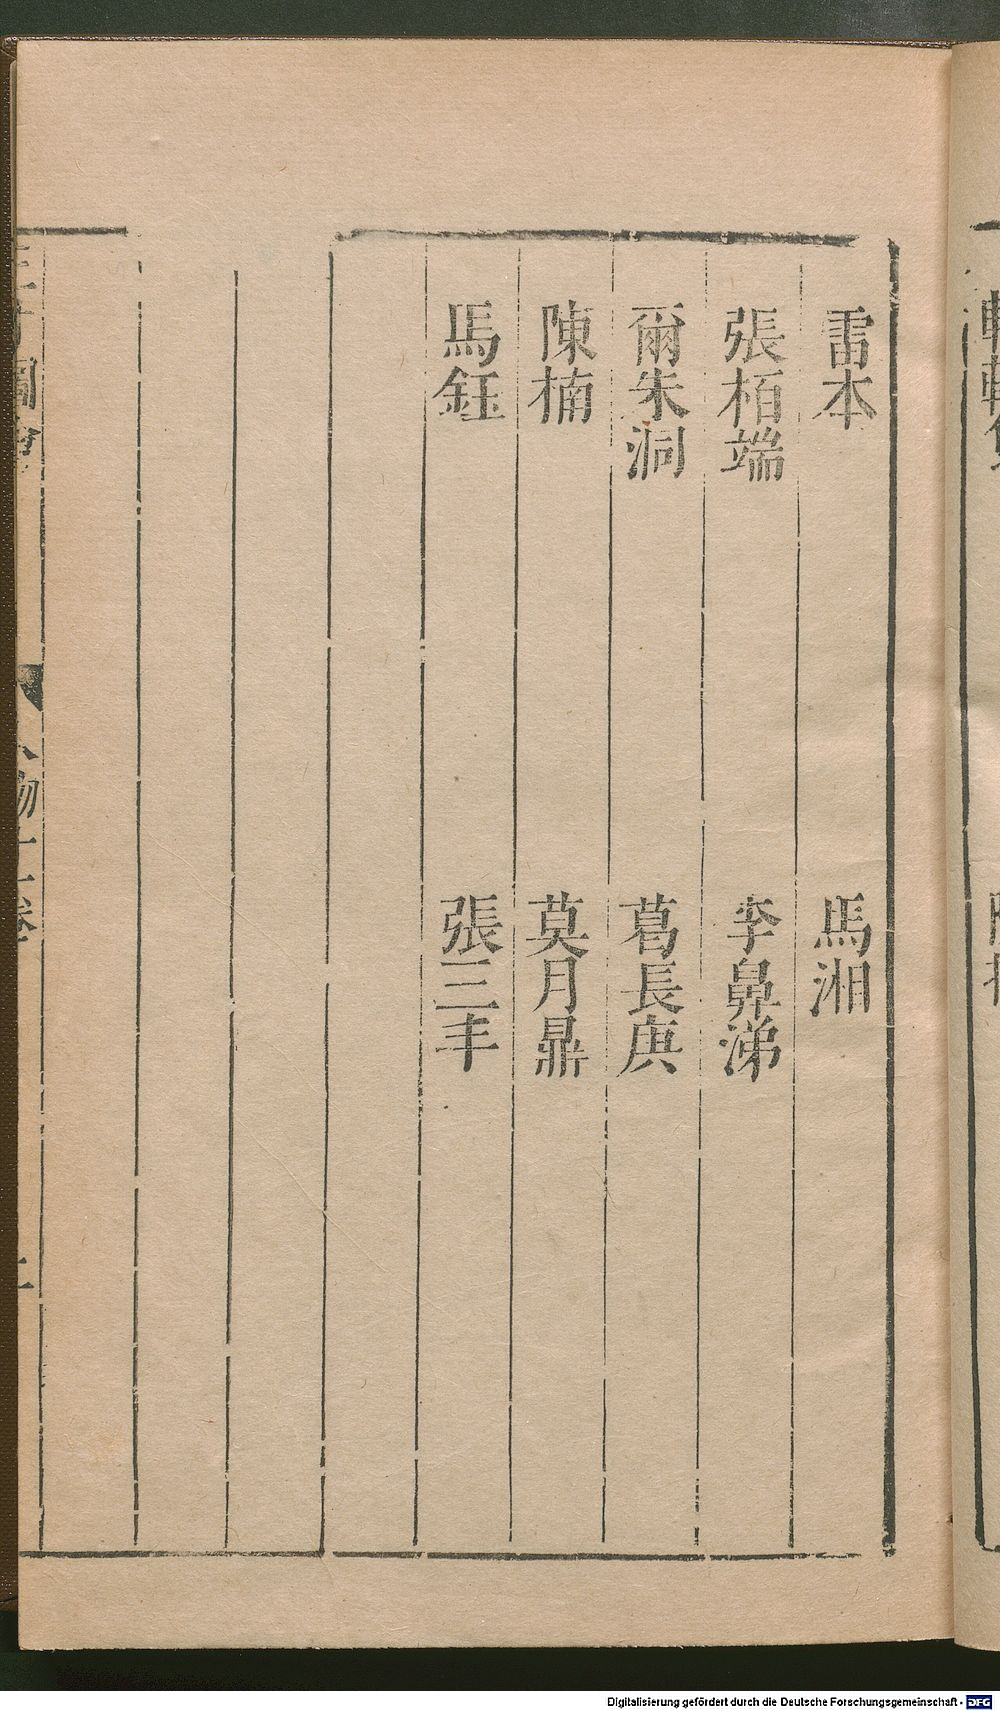 雷本
馬湘
張栢端
李鼻涕
爾朱洞
葛長庚
陳楠
莫月鼎
馬鈺
張三丰
Digitalisierung gefördert durch die Deutsche Forschungsgemeinschaft - DFG